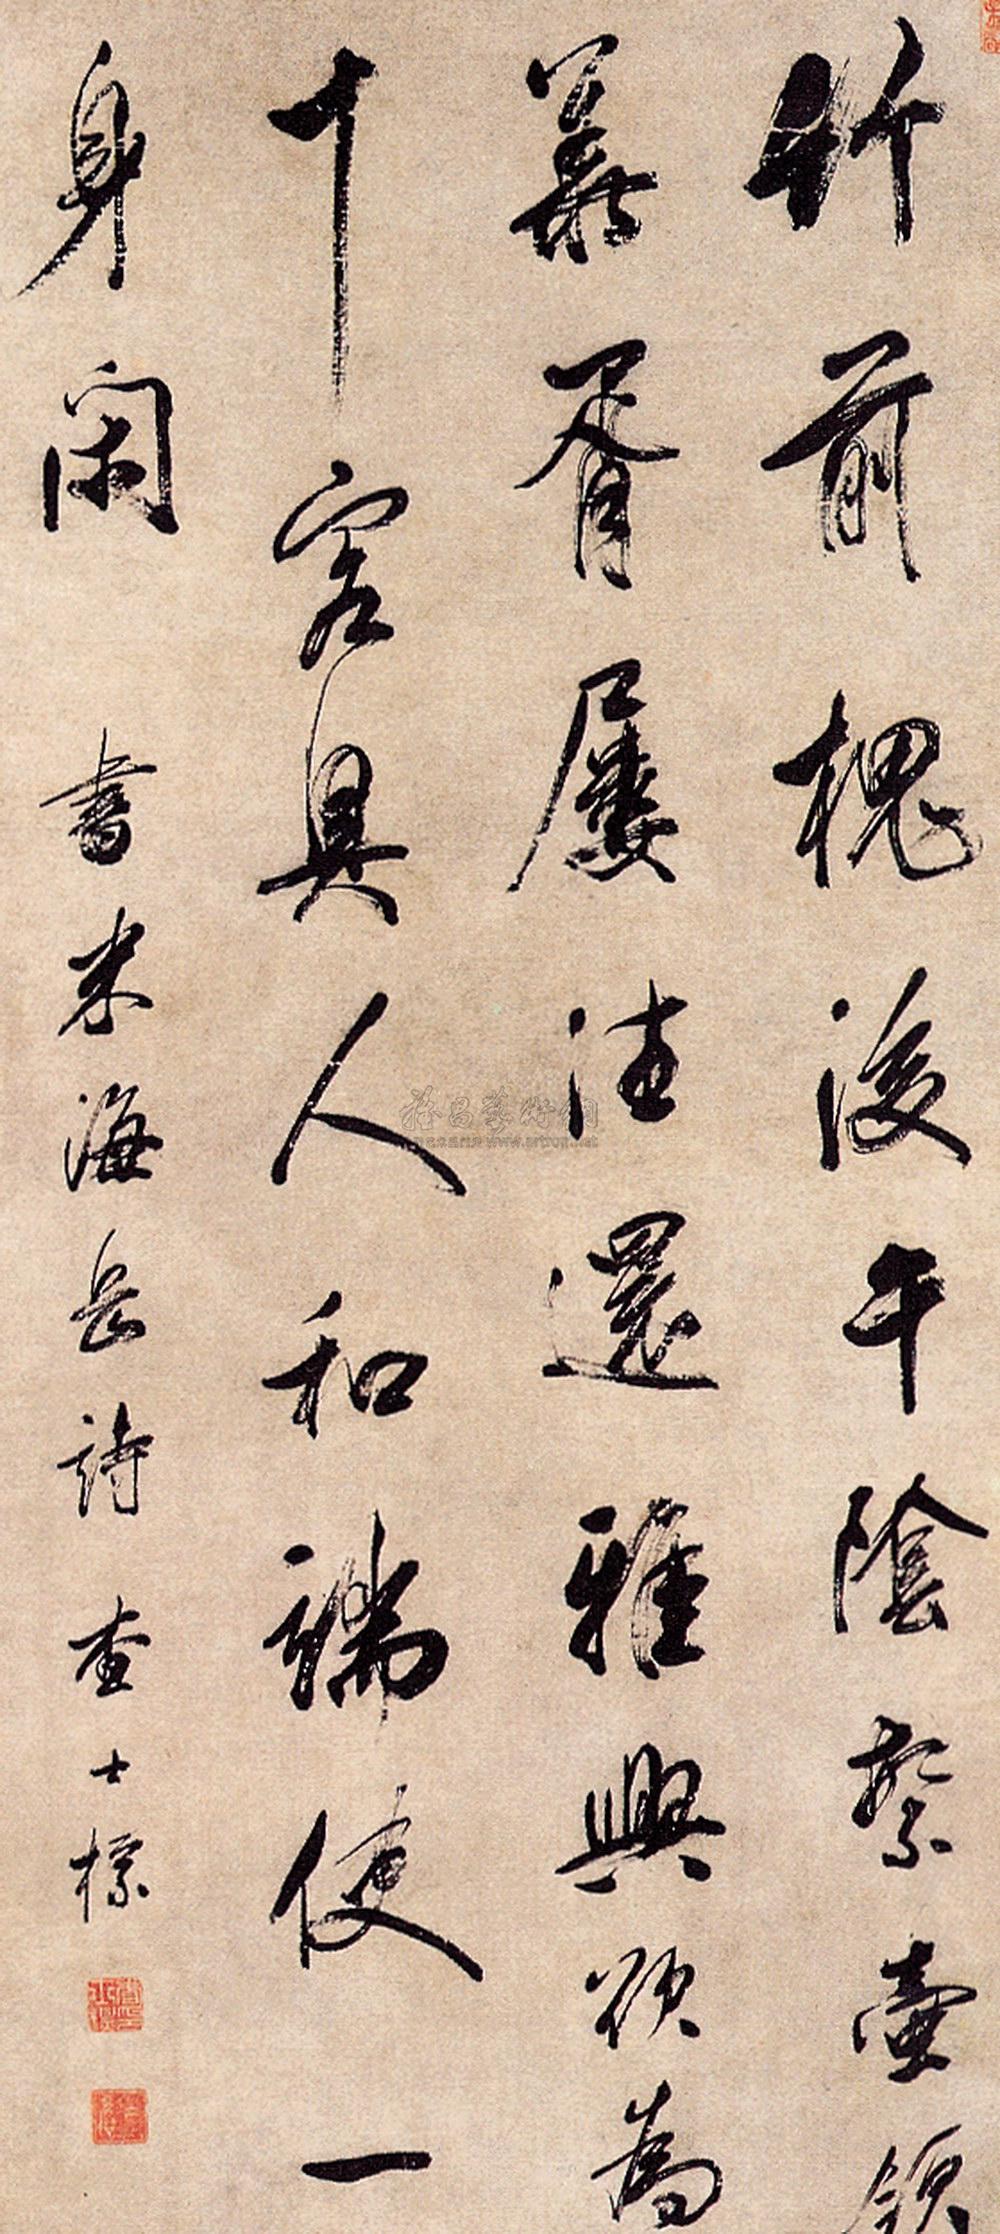 竹前槐後午陰繁壺領
華胥屢往還雅興欲為
十客具人和端使一
身閑 書米海岳詩 查士標
雅昌藝術網
www.artron.net